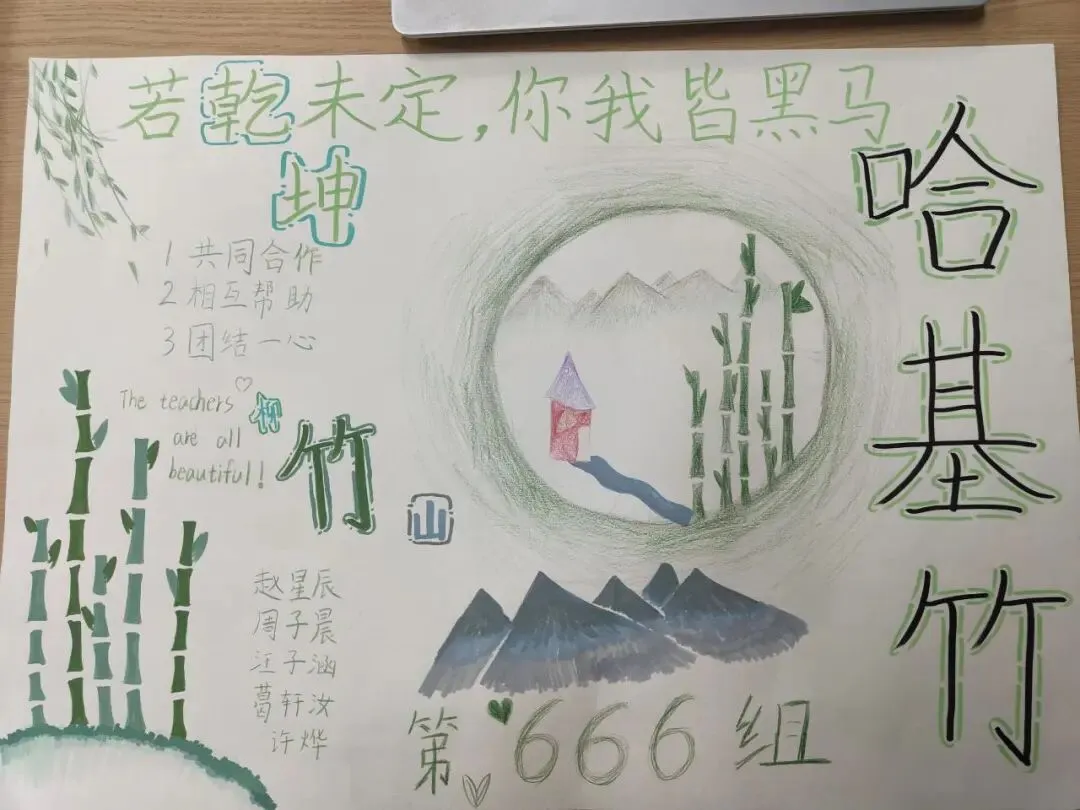 若乾未定,你我皆黑马
坤
哈基竹
1 共同合作
2 相互帮助
3 团结一心
The teachers
are all
beautiful!
竹
山
赵星辰
周子晨
江子涵
葛轩汝
许烨
第666组